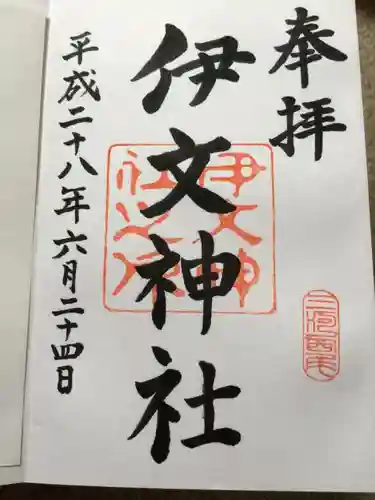 奉拝
伊文神社
平成二十八年六月二十四日
伊文神
社之印